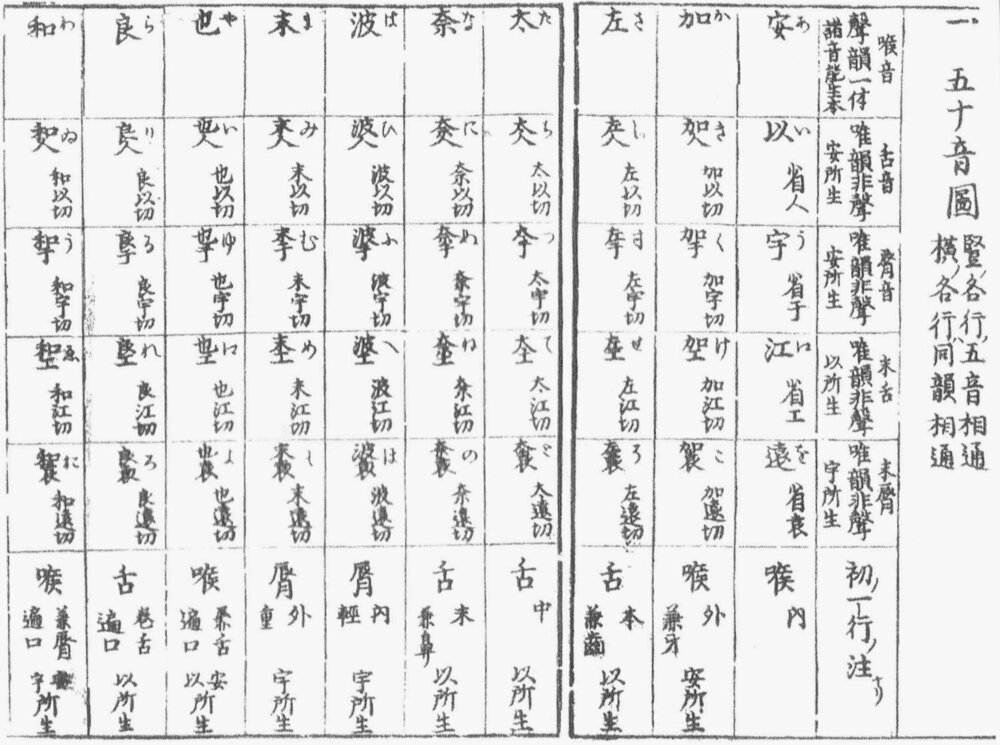 一 五十音圖
竪ノ各行ハ五音相通
横ノ各行ハ同韻相通
喉音
聲韻一体
諸音能生本
舌音
唯韻非聲
安所生
脣音
唯韻非聲
安所生
末舌
唯韻非聲
以所生
末脣
唯韻非聲
宇所生
初ノ一行ノ注ナリ
安 あ
以 い
省人
宇 う
省于
江 え
省工
遠 を
省袁
喉
内
加 か
き
加以切
く
加宇切
け
加江切
こ
加遠切
喉
外
兼牙
安所生
左 さ
し
左以切
す
左宇切
せ
左江切
そ
左遠切
舌
本
兼齒
以所生
太 た
ち
太以切
つ
太宇切
て
太江切
と
太遠切
舌
中
以所生
奈 な
に
奈以切
ぬ
奈宇切
ね
奈江切
の
奈遠切
舌
末
兼鼻
以所生
波 は
ひ
波以切
ふ
波宇切
へ
波江切
ほ
波遠切
脣
内
輕
宇所生
末 ま
み
末以切
む
末宇切
め
末江切
も
末遠切
脣
外
重
宇所生
也 や
い
也以切
ゆ
也宇切
え
也江切
よ
也遠切
喉
兼舌
遍口
安
以所生
良 ら
り
良以切
る
良宇切
れ
良江切
ろ
良遠切
舌
巻舌
遍口
以所生
和 わ
ゐ
和以切
う
和宇切
ゑ
和江切
お
和遠切
喉
兼脣
遍口
宇所生